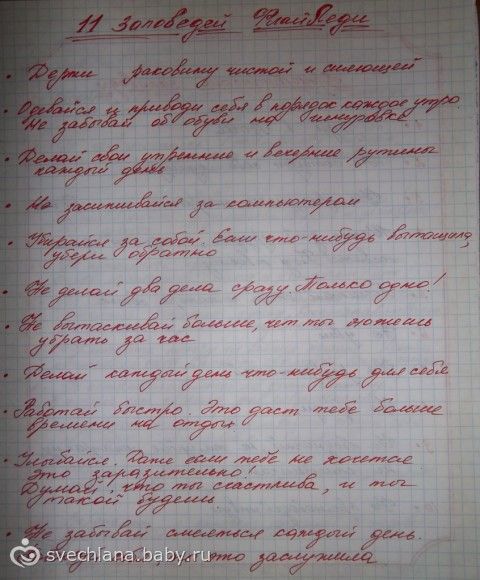 11 Заповедей ФлайЛеди
• Держи раковину чистой и сияющей
• Одевайся и приводи себя в порядок каждое утро.
Не забывай об обуви на шнуровке
• Делай свои утренние и вечерние рутины
каждый день
• Не засиживайся за компьютером
• Убирайся за собой. Если что-нибудь вытащила,
убери обратно
• Не делай два дела сразу. Только одно!
• Не вытаскивай больше, чем ты можешь
убрать за час
• Делай каждый день что-нибудь для себя
• Работай быстро. Это даст тебе больше
времени на отдых
• Улыбайся. Даже если тебе не хочется
Это заразительно!
Думай, что ты счастлива, и ты
такой будешь
• Не забывай смеяться каждый день.
это заслужила
svechlana.baby.ru